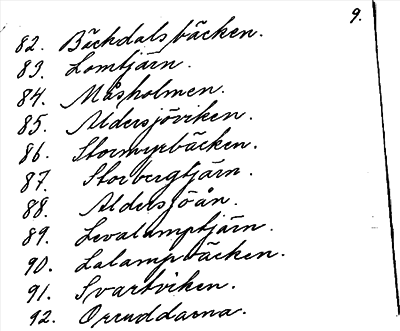 9.
82. Bäckdalsbäcken.
83. Lomtjärn.
84. Måsholmen.
85. Aldersjöviken.
86. Stormyrbäcken.
87. Storbergtjärn.
88. Aldersjöån.
89. Levalamptjärn.
90. Lalampbäcken.
91. Svartviken.
92. Orruddarna.